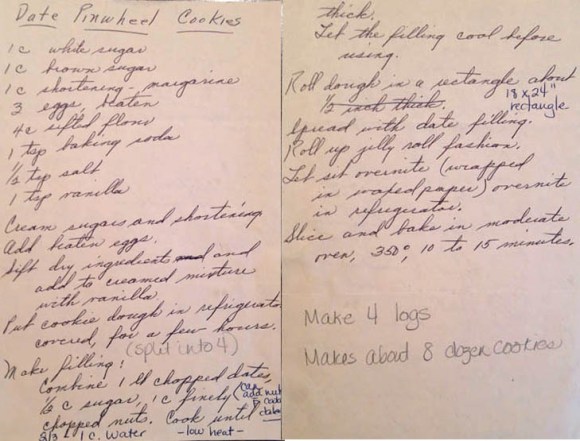 Date Pinwheel Cookies
1 c white sugar
1 c brown sugar
1 c shortening - margarine
3 eggs, beaten
4c sifted flour
1 tsp baking soda
1/2 tsp salt
1 tsp vanilla
Cream sugars and shortening
Add beaten eggs.
Sift dry ingredients and and
add to creamed mixture
with vanilla.
Put cookie dough in refrigerator
covered, for a few hours.
(split into 4)
Make filling:
Combine 1 lb chopped dates,
1/2 c sugar, 1 c finely (can
add nuts
chopped nuts. Cook until
2/3 1 c. water -low heat-
thick.
Let the filling cool before
using.
Roll dough in a rectangle about
1/2 inch thick. 18 x 24"
rectangle
Spread with date filling.
Roll up jelly roll fashion.
Let set overnite (wrapped
in waxed paper) overnite
in refrigerator.
Slice and bake in moderate
oven, 350°, 10 to 15 minutes.
Make 4 logs
Makes about 8 dozen cookies